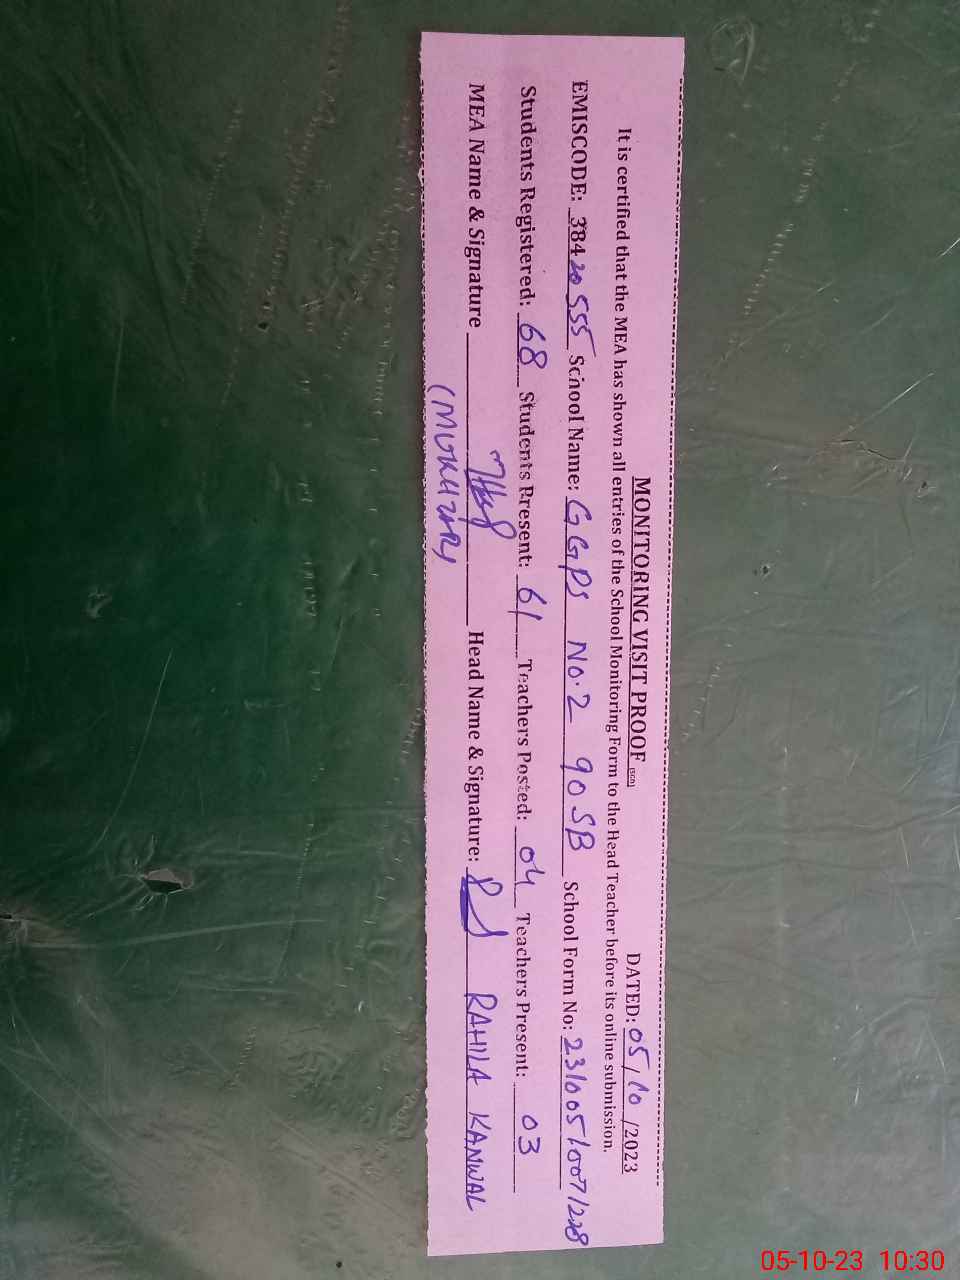 MONITORING VISIT PROOF (SED)
DATED: 05/10/2023
It is certified that the MEA has shown all entries of the School Monitoring Form to the Head Teacher before its online submission.
EMISCODE: 38420555 School Name: GGPS No.2 90 SB School Form No: 23100510071228
Students Registered: 68 Students Present: 61 Teachers Posted: 04 Teachers Present: 03
MEA Name & Signature Head Name & Signature: RAHILA KANWAL
(MUKHTAR)
05-10-23 10:30